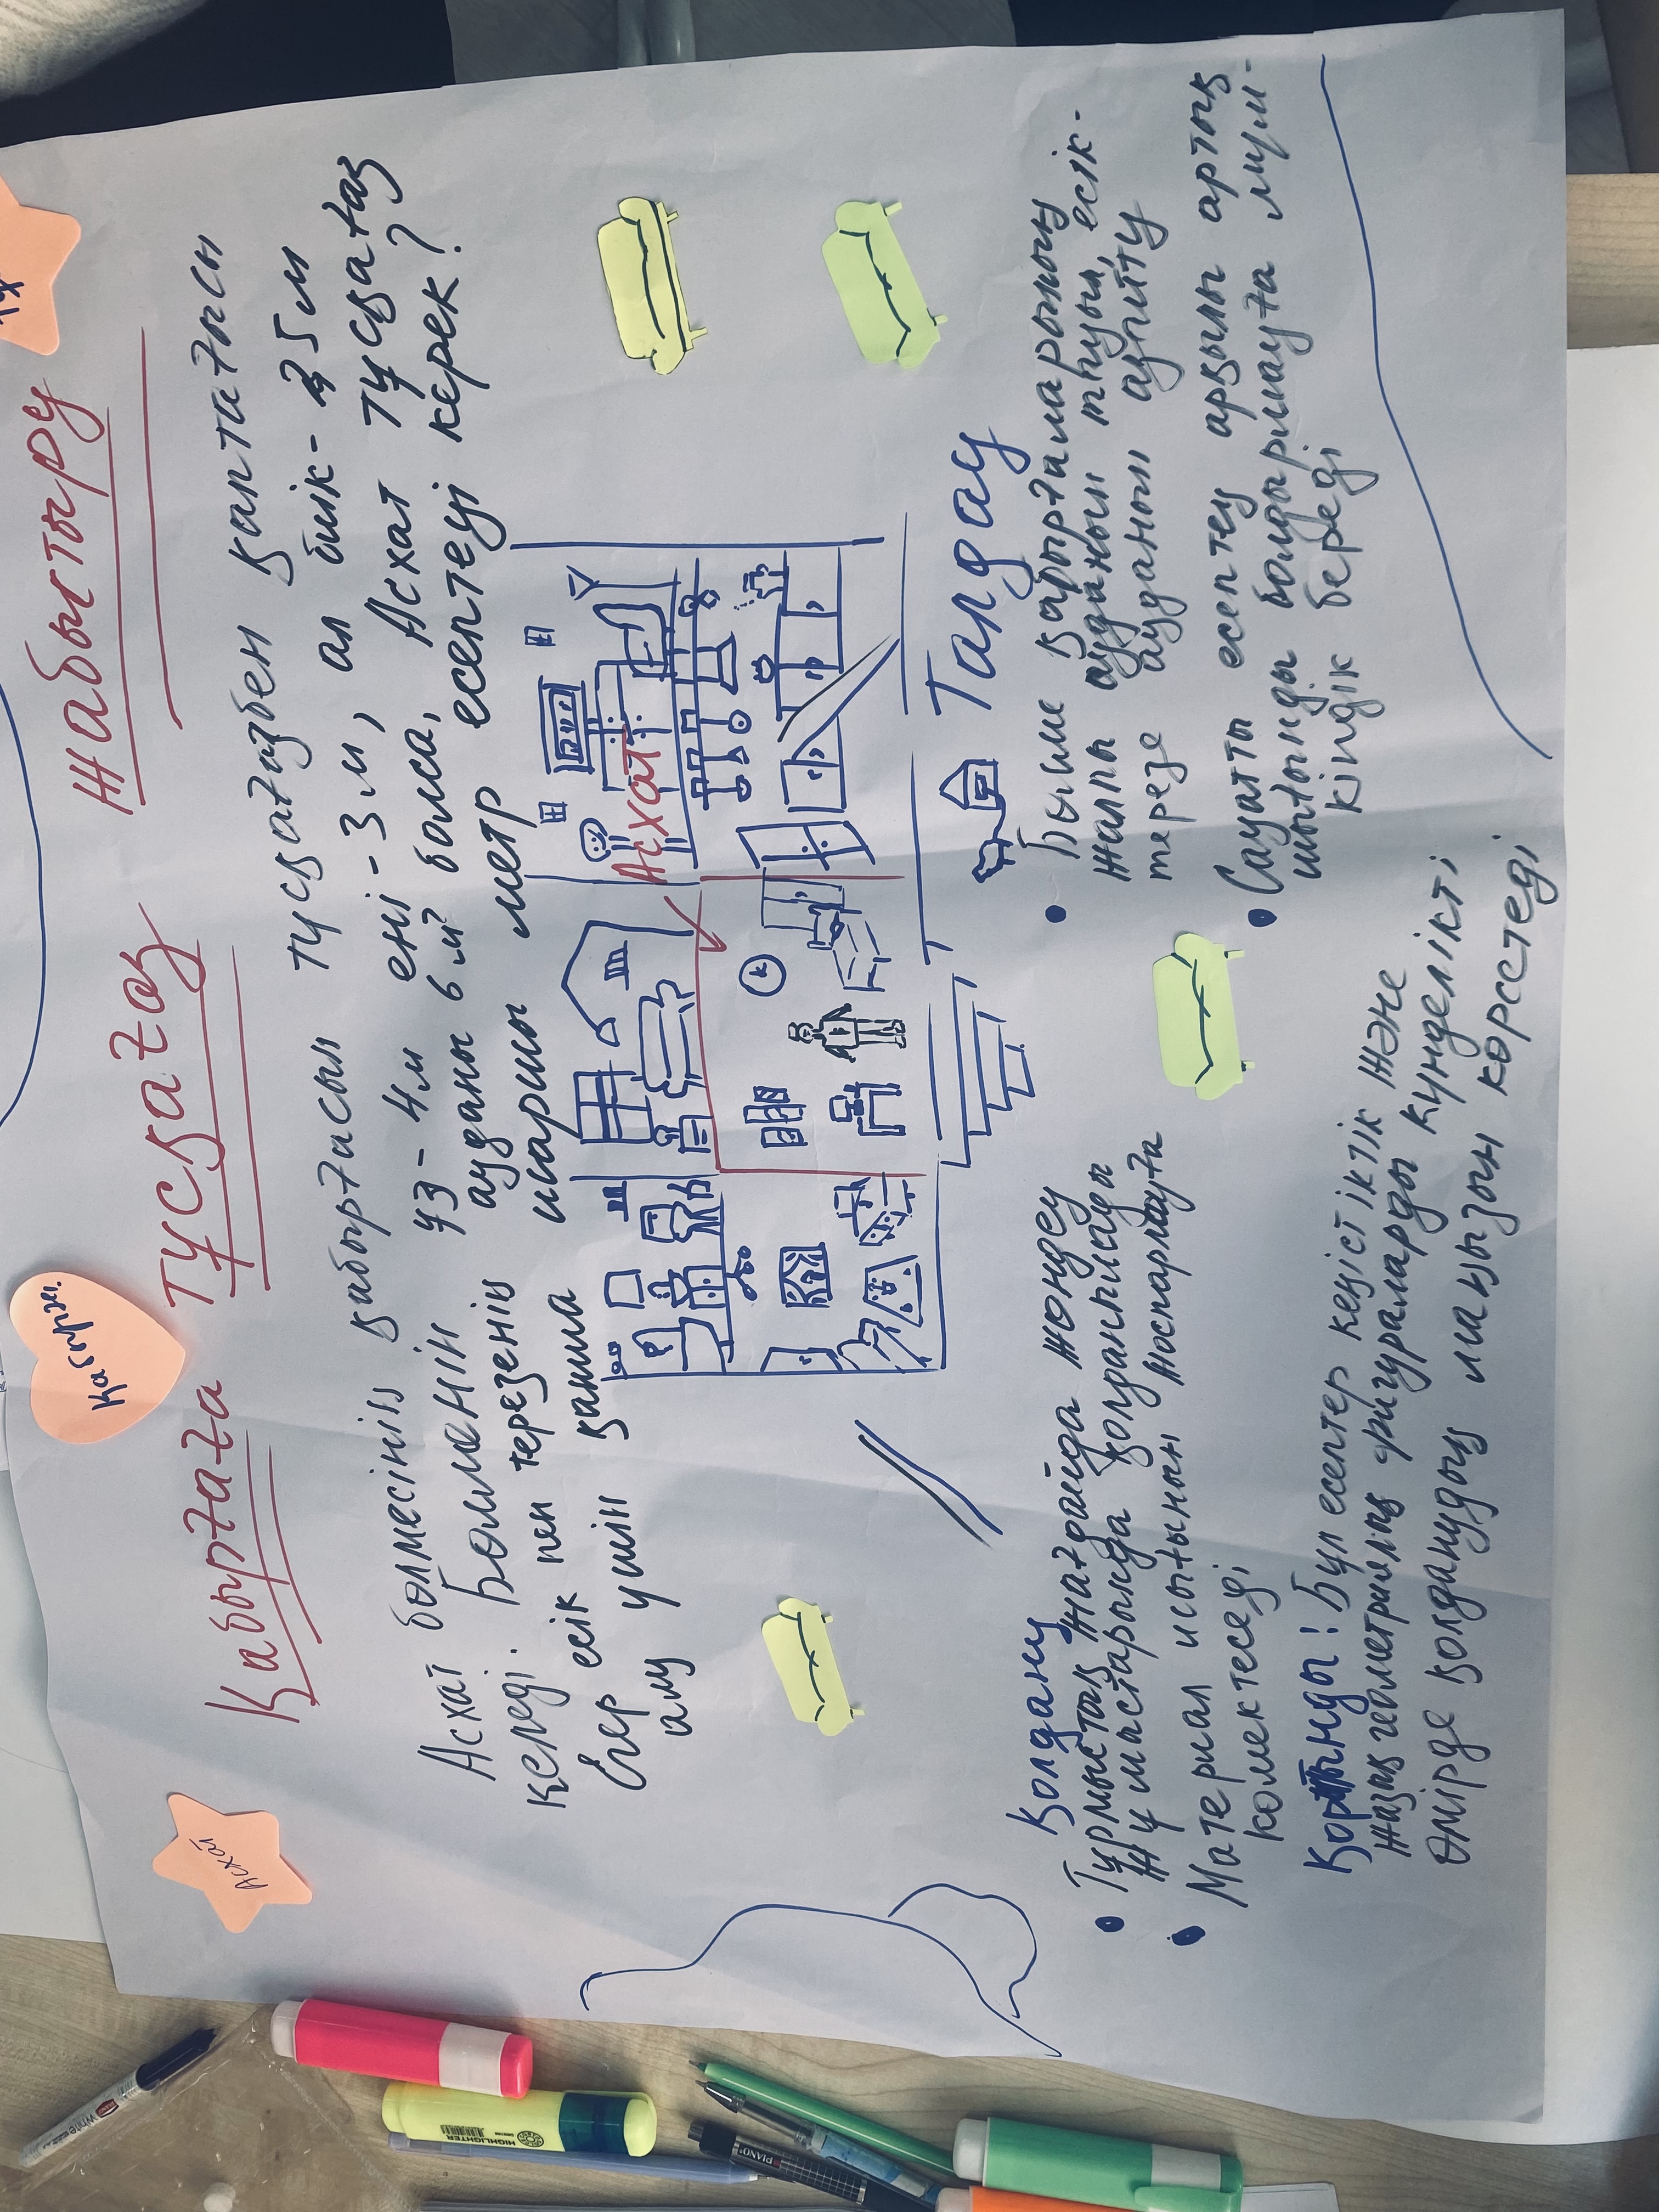 Қабырғаға тұсқағаз жабыстыру
Асхат бөлмесінің қабырғасын тұсқағазбен қаптағысы
келеді. Бөлменің ұз-4м ені-3м, ал биік-2,5м
Егер есік пен терезенің ауданы 6м² болса, Асхат тұсқағаз
алу үшін қанша шаршы метр есептеуі керек?
Асхат
Қолдану
• Тұрмыстық жағдайда жөндеу
жұмыстарында қолданылады
• Материал шығынын жоспарлауға
көмектеседі
Қорытынды: Бұл есептер кеңістіктік және
жазық геометриялық фигураларды күнделікті
өмірде қолданудың маңызын көрсетеді
Талдау
• Бөлме қабырғаларының
жалпы ауданын табу, есік-
терезе ауданын азайту
• Сауатты есептеу арқылы артық
шығынды болдырмауға мүм-
кіндік береді
Асхат
HIGHLIGHTER
PIANO
White